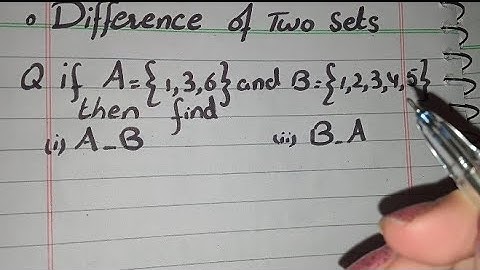 • Difference of Two Sets
Q if A={1,3,6} and B={1,2,3,4,5}
then find
(i) A-B (ii) B-A